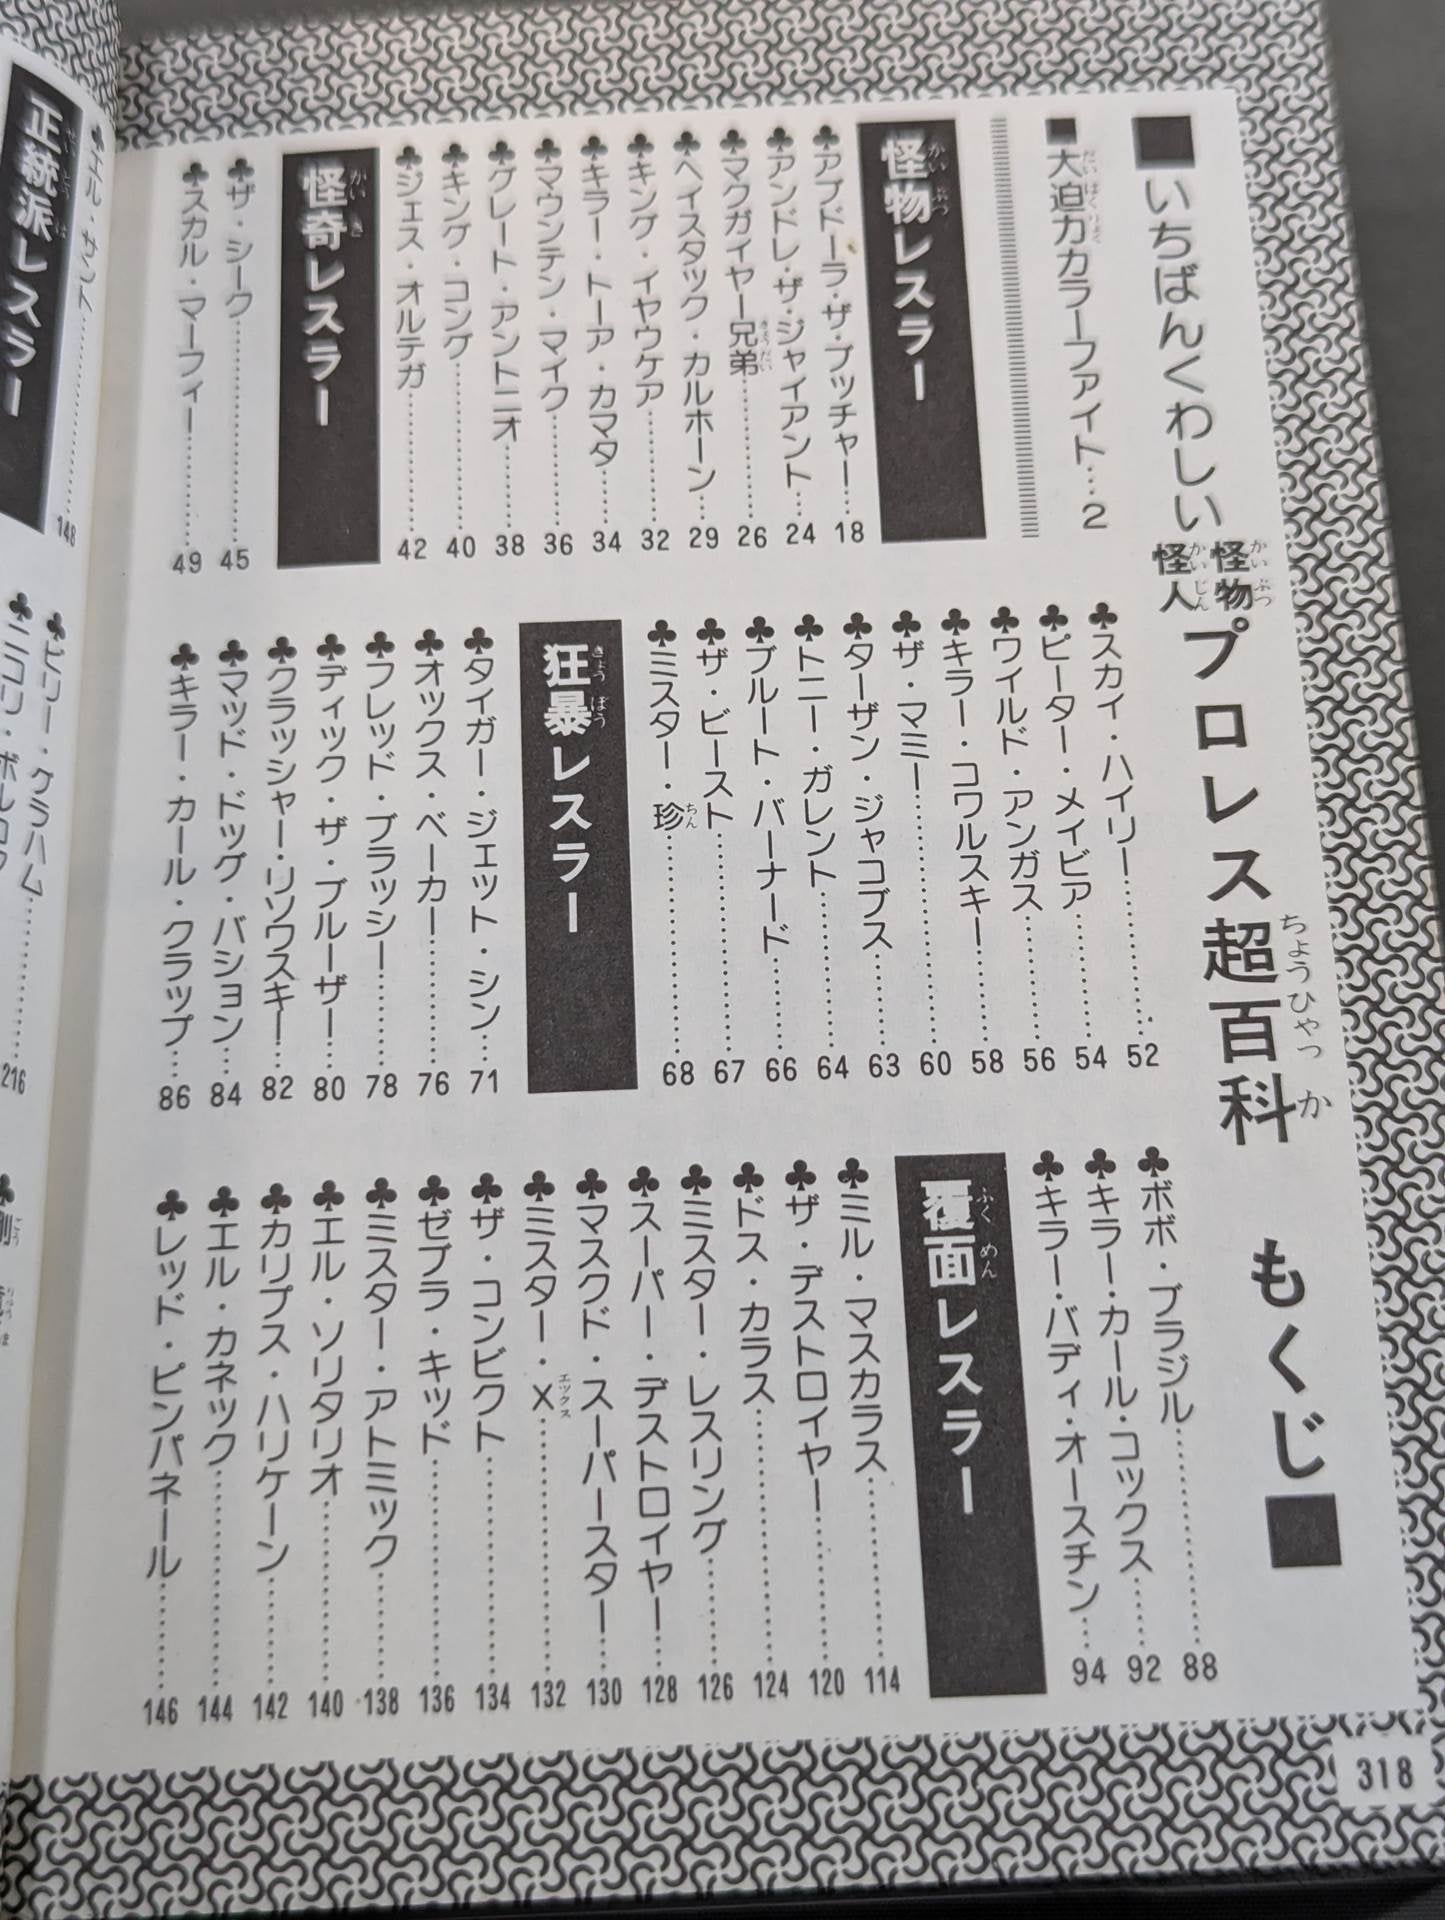 ■いちばんくわしい怪物怪人プロレス超百科 もくじ■
かいぶつ
かいじん
ちょうひゃっか
■大迫力カラーファイト…2
だいはくりょく
怪物レスラー
かいぶつ
♣アブドーラ・ザ・ブッチャー…18
♣アンドレ・ザ・ジャイアント…24
♣マクガイヤー兄弟…26
きょうだい
♣ヘイスタック・カルホーン…29
♣キング・イヤウケア…32
♣キラー・トーア・カマタ…34
♣マウンテン・マイク…36
♣グレート・アントニオ…38
♣キング・コング…40
♣ジェス・オルテガ…42
怪奇レスラー
かいき
♣ザ・シーク…45
♣スカル・マーフィー…49
♣スカイ・ハイリー…52
♣ピーター・メイビア…54
♣ワイルド・アンガス…56
♣キラー・コワルスキー…58
♣ザ・マミー…60
♣ターザン・ジャコブス…63
♣トニー・ガレント…64
♣ブルート・バーナード…66
♣ザ・ビースト…67
♣ミスター・珍…68
ちん
狂暴レスラー
きょうぼう
♣タイガー・ジェット・シン…71
♣オックス・ベーカー…76
♣フレッド・ブラッシー…78
♣ディック・ザ・ブルーザー…80
♣クラッシャー・リソワスキー…82
♣マッド・ドッグ・バション…84
♣キラー・カール・クラップ…86
♣ボボ・ブラジル…88
♣キラー・カール・コックス…92
♣キラー・バディ・オースチン…94
覆面レスラー
ふくめん
♣ミル・マスカラス…114
♣ザ・デストロイヤー…120
♣ドス・カラス…124
♣ミスター・レスリング…126
♣スーパー・デストロイヤー…128
♣マスクド・スーパースター…130
♣ミスター・X…132
エックス
♣ザ・コンビクト…134
♣ゼブラ・キッド…136
♣ミスター・アトミック…138
♣エル・ソリタリオ…140
♣カリプス・ハリケーン…142
♣エル・カネック…144
♣レッド・ピンパネール…146
318
♣エル・サント…148
正統派レスラー
せいとうは
♣ビリー・グラハム…216